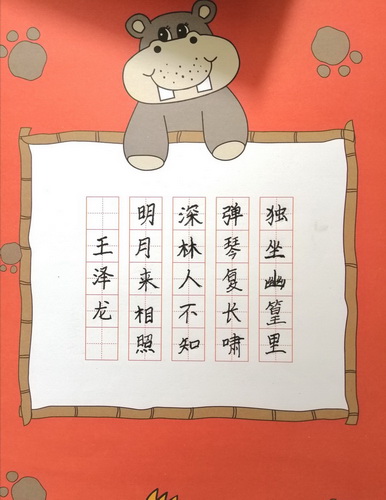 独坐幽篁里
弹琴复长啸
深林人不知
明月来相照
王泽龙